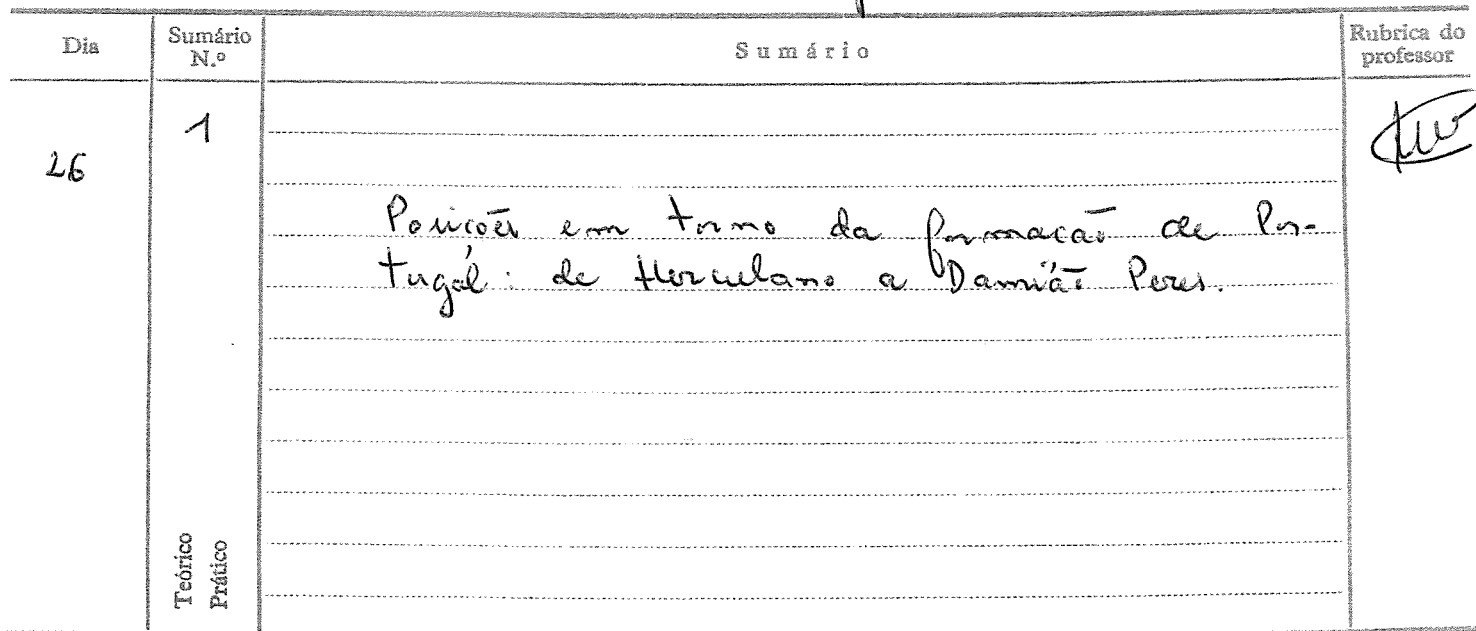 Dia
Sumário N.º
Sumário
Rubrica do professor
26
1
Posições em torno da formação de Por-
tugal: de Herculano a Damião Peres.
Teórico
Prático